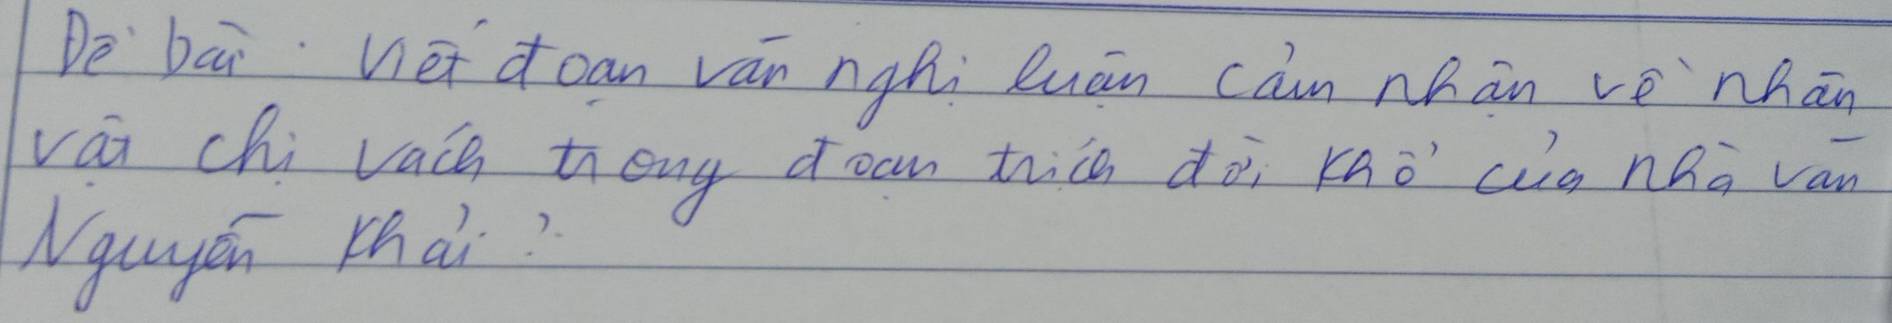 Đề bài: Viết đoạn văn nghị luận cảm nhận về nhân
vật chị Vách trong đoạn trích đời khổ của nhà văn
Nguyễn Khải?